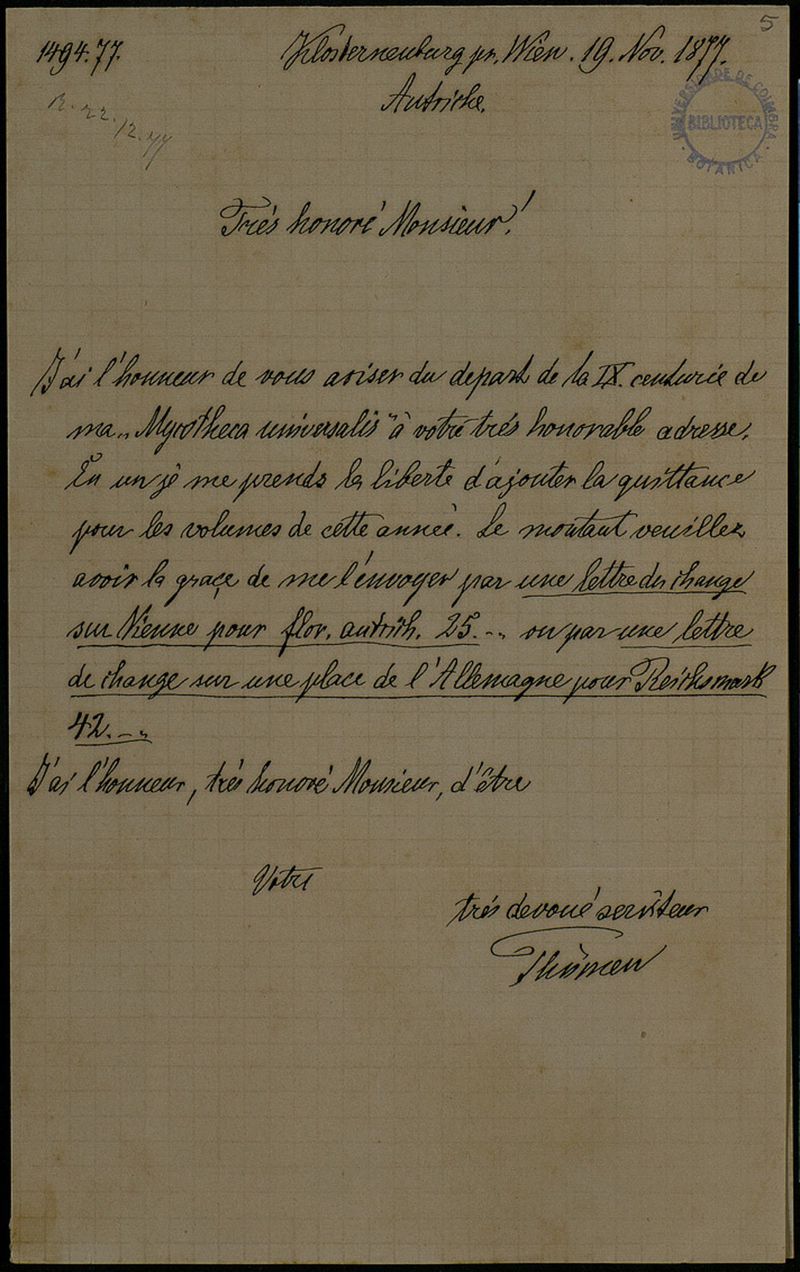 5
1494.77.
Klosterneuburg pr. Wien. 19. Nov. 1877.
Autriche.
R. 22.
12. 77
UNIVERSIDADE DE COIMBRA
BIBLIOTECA
BOTANICA
Trés honoré Monsieur!
J'ai l'honneur de vous aviser du depart de la IX. centurie de
ma „Mycotheca universalis" à votre trés honorable adresse.
En un je me prends la liberté d'ajouter la quittance
pour les volumes de cette année. Le montant veuillez
avoir la graçe de me l'envoyer par une lettre du change
sur Vienne pour flor. autrich. 25.–„ ou par une lettre
de change sur une place de l'Allemagne pour Reichsmark
42.–„
J'ai l'honneur, trés honoré Monsieur, d'être
Votre
trés devoué serviteur
Thümen